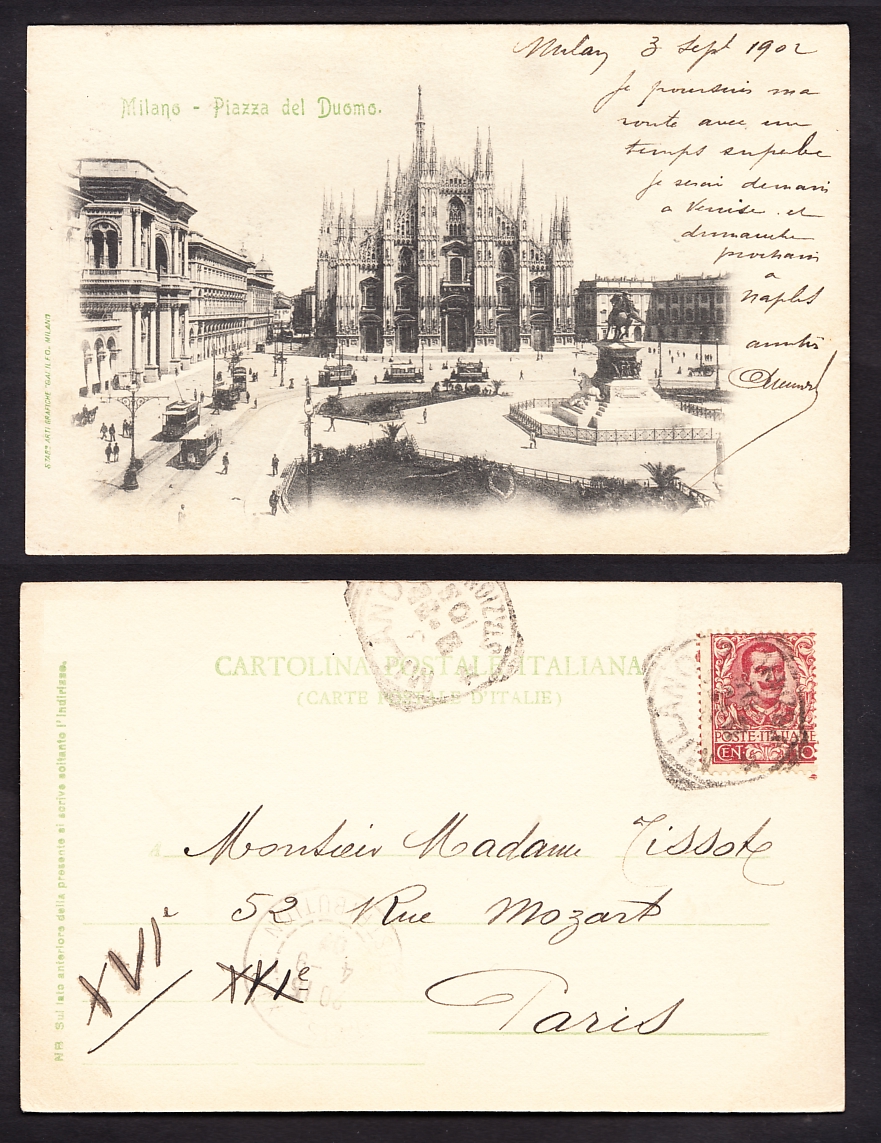 Milan 3 Sept 1902
Milano - Piazza del Duomo.
je poursuis ma
route avec un
temps superbe
je serai demain
a Venise et
dimanche
prochain
a
Naples
amitiés
STAB? ARTI GRAFICHE "GALILEO", MILANO
CARTOLINA POSTALE ITALIANA
(CARTE POSTALE D'ITALIE)
MILANO
MILANO
POSTE·ITALIANE
CENT. 10
NB. Sul lato anteriore della presente si scrive soltanto l'indirizzo.
A Monsieur Madame Tissot
52 Rue Mozart
DISTRIBUTION
XVIe
XXIe
Paris